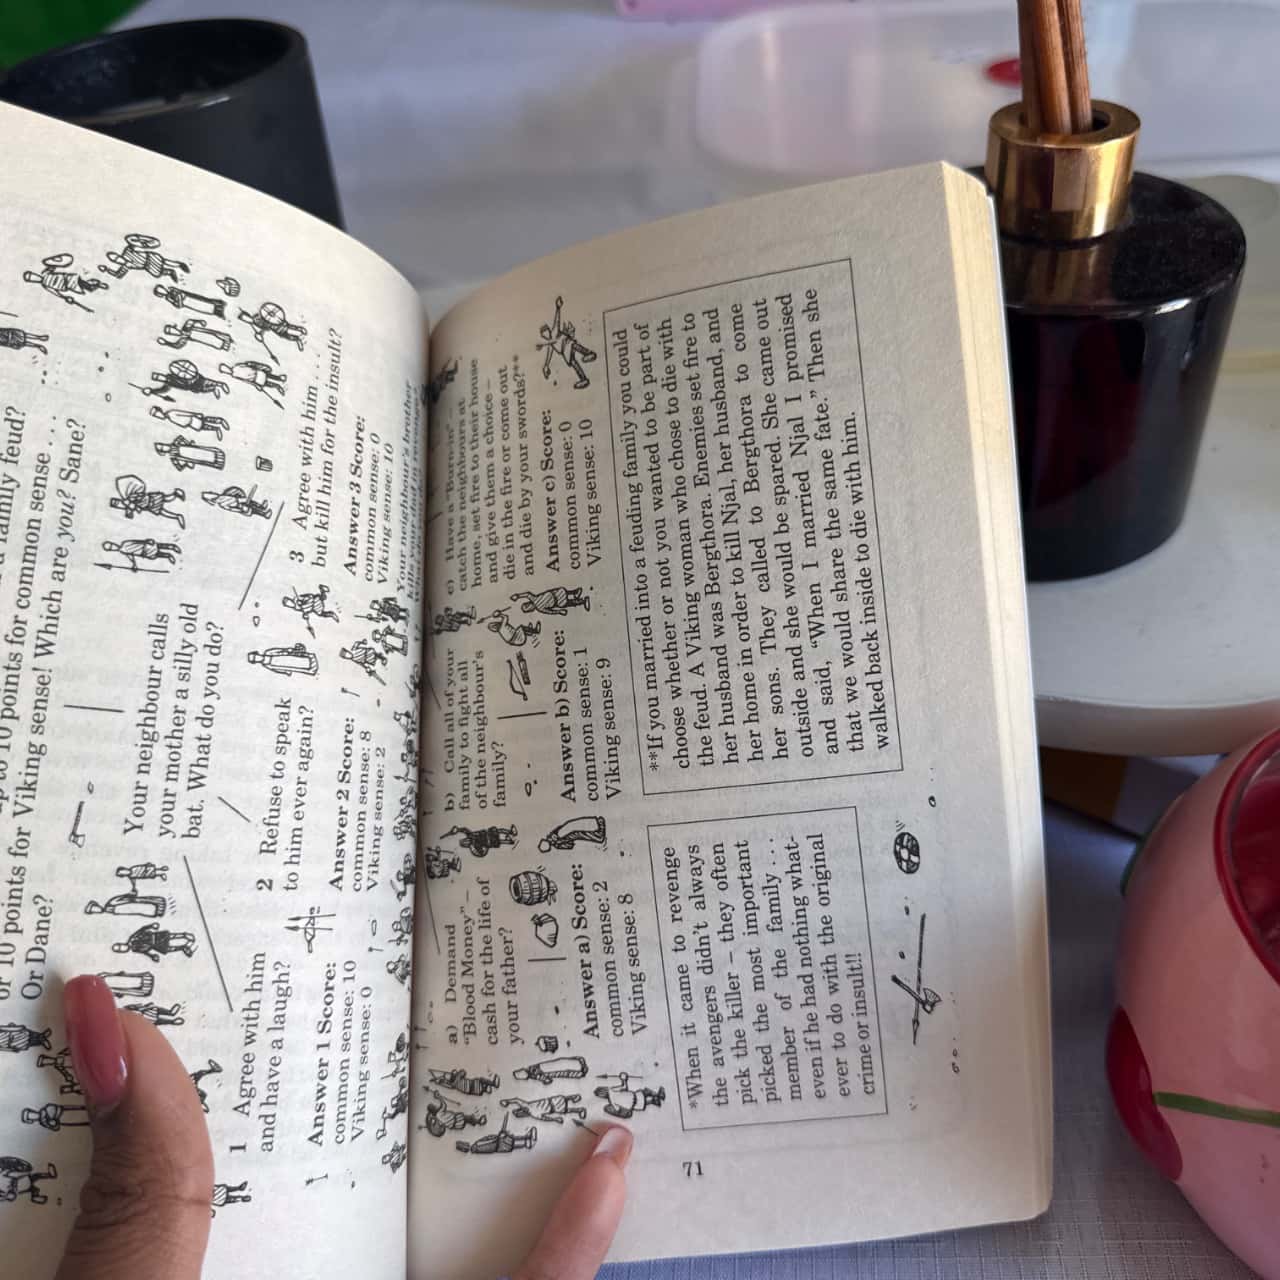 a family feud?
up to 10 points for common sense . . .
or 10 points for Viking sense! Which are you? Sane?
Or Dane?
Your neighbour calls
your mother a silly old
bat. What do you do?
1 Agree with him
and have a laugh?
Answer 1 Score:
common sense: 10
Viking sense: 0
2 Refuse to speak
to him ever again?
Answer 2 Score:
common sense: 8
Viking sense: 2
3 Agree with him . . .
but kill him for the insult?
Answer 3 Score:
common sense: 0
Viking sense: 10
Your neighbour's brother
a) Demand
"Blood Money" –
cash for the life of
your father?
Answer a) Score:
common sense: 2
Viking sense: 8
b) Call all of your
family to fight all
of the neighbour's
family?
Answer b) Score:
common sense: 1
Viking sense: 9
c) Have a "Burn-in" –
catch the neighbours at
home, set fire to their house
and give them a choice –
die in the fire or come out
and die by your swords?**
Answer c) Score:
common sense: 0
Viking sense: 10
*When it came to revenge
the avengers didn't always
pick the killer – they often
picked the most important
member of the family . . .
even if he had nothing what-
ever to do with the original
crime or insult!!
**If you married into a feuding family you could
choose whether or not you wanted to be part of
the feud. A Viking woman who chose to die with
her husband was Bergthora. Enemies set fire to
her home in order to kill Njal, her husband, and
her sons. They called to Bergthora to come
outside and she would be spared. She came out
and said, "When I married Njal I promised
that we would share the same fate." Then she
walked back inside to die with him.
71